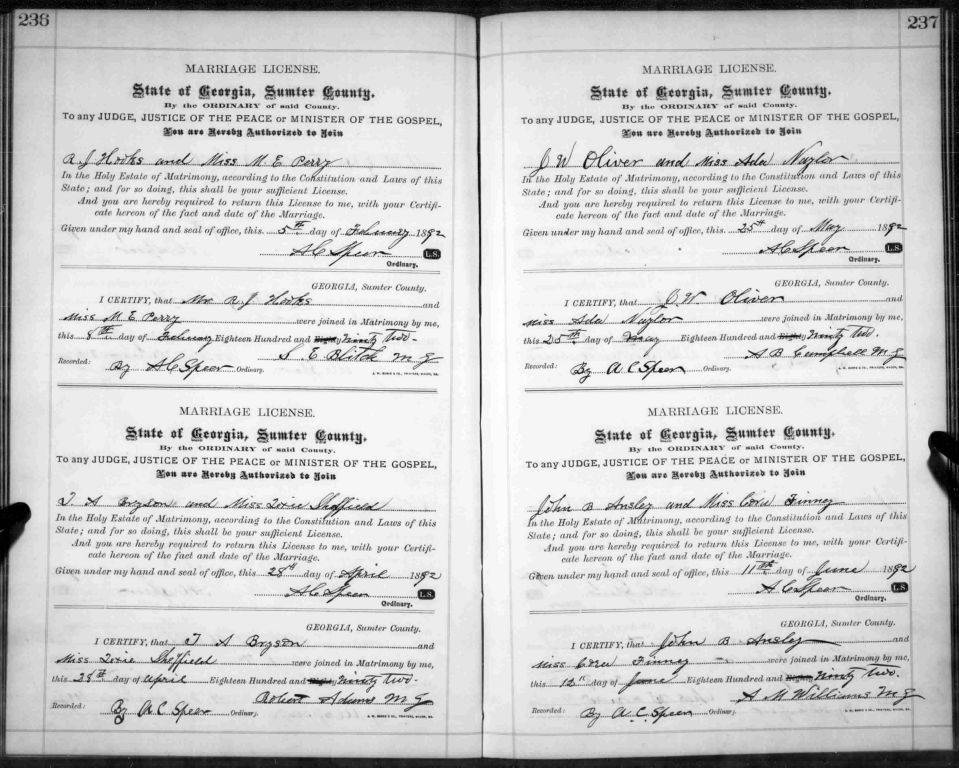 236
MARRIAGE LICENSE.
State of Georgia, Sumter County.
By the ORDINARY of said County.
To any JUDGE, JUSTICE OF THE PEACE or MINISTER OF THE GOSPEL,
You are Hereby Authorized to Join
R J Hooks and Miss M E Perry
In the Holy Estate of Matrimony, according to the Constitution and Laws of this
State; and for so doing, this shall be your sufficient License.
And you are hereby required to return this License to me, with your Certifi-
cate hereon of the fact and date of the Marriage.
Given under my hand and seal of office, this 5th day of February 1892
A C Speer L.S.
Ordinary.
GEORGIA, Sumter County.
I CERTIFY, that Mr. R. J Hooks and
Miss M E Perry were joined in Matrimony by me,
this 8th day of February Eighteen Hundred and Eighty Ninty two.
S. E Blitch M G
Recorded: By A C Speer Ordinary.
MARRIAGE LICENSE.
State of Georgia, Sumter County.
By the ORDINARY of said County.
To any JUDGE, JUSTICE OF THE PEACE or MINISTER OF THE GOSPEL,
You are Hereby Authorized to Join
T A Bryson and Miss Sheffield
In the Holy Estate of Matrimony, according to the Constitution and Laws of this
State; and for so doing, this shall be your sufficient License.
And you are hereby required to return this License to me, with your Certifi-
cate hereon of the fact and date of the Marriage.
Given under my hand and seal of office, this 28th day of April 1892
A C Speer L.S.
Ordinary.
GEORGIA, Sumter County.
I CERTIFY, that T A Bryson and
Miss Sheffield were joined in Matrimony by me,
this 28th day of April Eighteen Hundred and Eighty Ninty two.
Robert Adams M G
Recorded: By A C Speer Ordinary.
237
MARRIAGE LICENSE.
State of Georgia, Sumter County.
By the ORDINARY of said County.
To any JUDGE, JUSTICE OF THE PEACE or MINISTER OF THE GOSPEL,
You are Hereby Authorized to Join
J W Oliver and Miss Ada Naylor
In the Holy Estate of Matrimony, according to the Constitution and Laws of this
State; and for so doing, this shall be your sufficient License.
And you are hereby required to return this License to me, with your Certifi-
cate hereon of the fact and date of the Marriage.
Given under my hand and seal of office, this 25th day of May 1892
A C Speer L.S.
Ordinary.
GEORGIA, Sumter County.
I CERTIFY, that J W Oliver and
Miss Ada Naylor were joined in Matrimony by me,
this 25th day of May Eighteen Hundred and Eighty Ninty two.
A B Campbell M G
Recorded: By A C Speer Ordinary.
MARRIAGE LICENSE.
State of Georgia, Sumter County.
By the ORDINARY of said County.
To any JUDGE, JUSTICE OF THE PEACE or MINISTER OF THE GOSPEL,
You are Hereby Authorized to Join
John B Ansley and Miss Cora Finney
In the Holy Estate of Matrimony, according to the Constitution and Laws of this
State; and for so doing, this shall be your sufficient License.
And you are hereby required to return this License to me, with your Certifi-
cate hereon of the fact and date of the Marriage.
Given under my hand and seal of office, this 11th day of June 1892
A C Speer L.S.
Ordinary.
GEORGIA, Sumter County.
I CERTIFY, that John B Ansley and
Miss Cora Finney were joined in Matrimony by me,
this 12th day of June Eighteen Hundred and Eighty Ninty two.
A M Williams M G
Recorded: By A. C. Speer Ordinary.